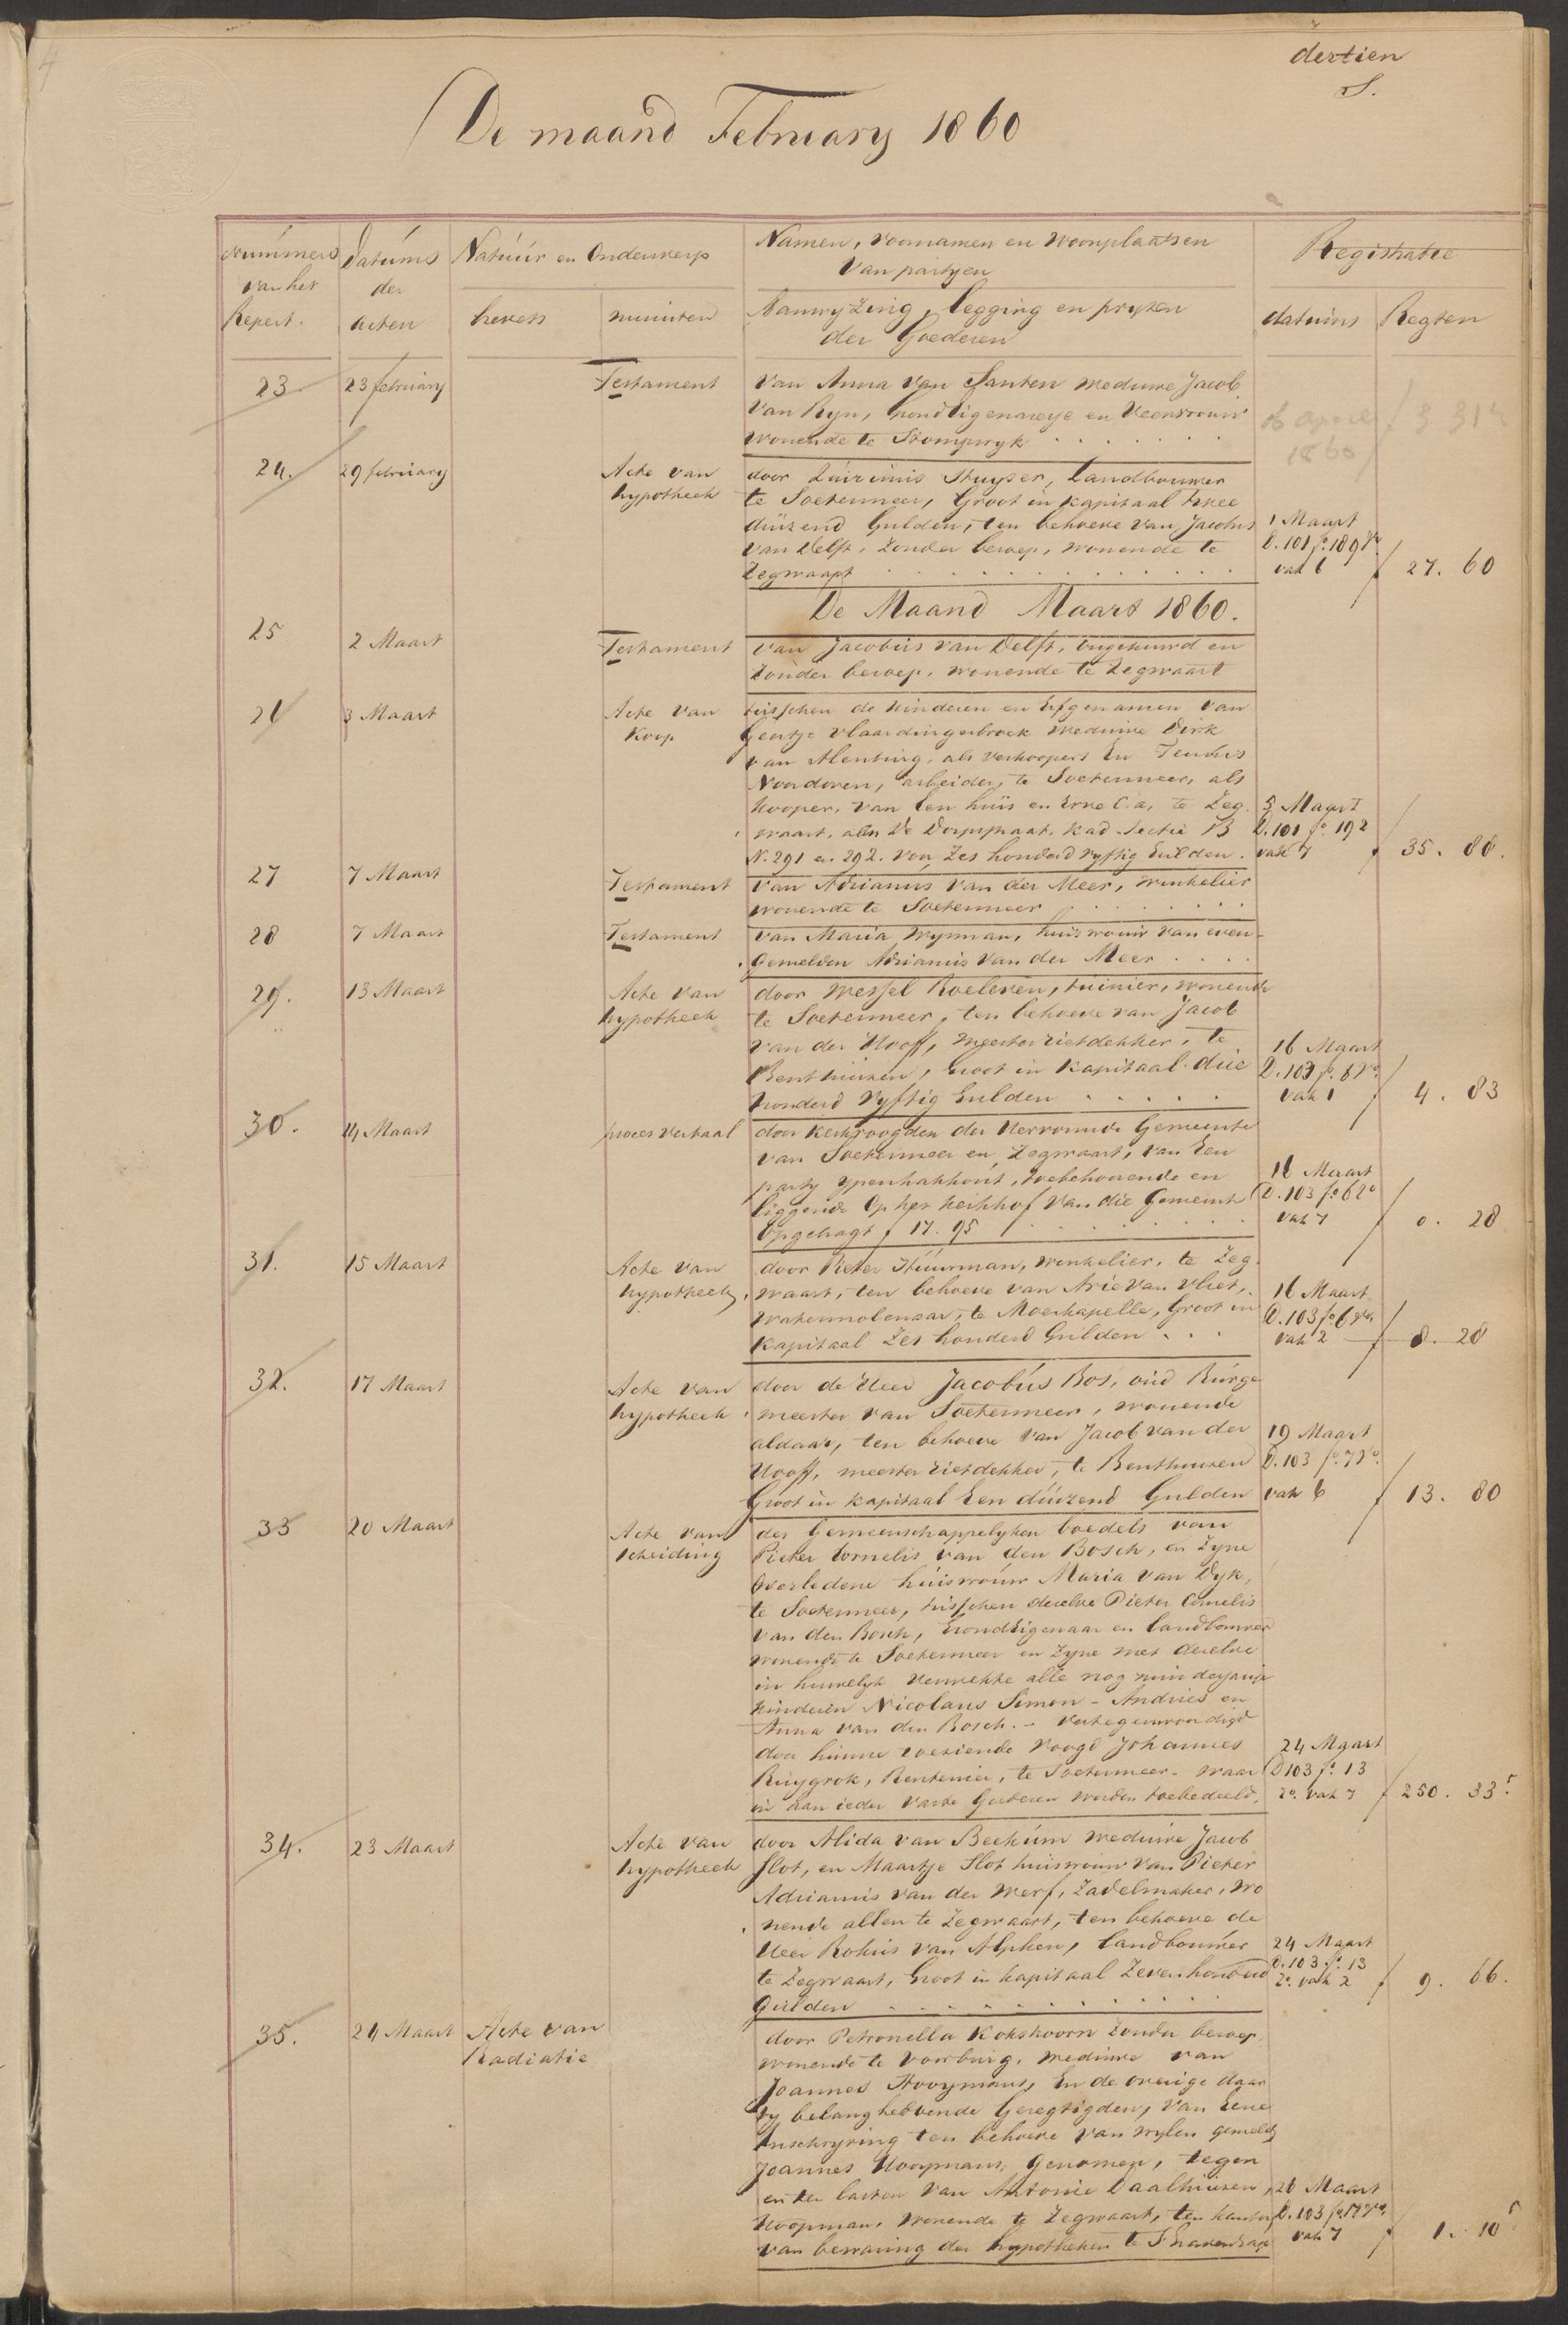 4
dertien
S.
De maand February 1860
Nummers van het Repert.
Datums der acten
Natuur en Onderwerp
brevets
minuten
Namen, voornamen en woonplaatsen
van partyen
Aanwyzing, legging en pryzen
der Goederen
Registratie
datums
Regten
23
23 february
Testament
van Anna van Santen weduwe Jacob
van Ryn, grondeigenaresse en Veenvrouw
wonende te Stompwyk
1860
24.
29 february
Acte van
hypotheek
door Quirinus Stuyser, Landbouwer
te Soetermeer, Groot in kapitaal twee
duizend Gulden, ten behoeve van Jacobus
van Delft, zonder beroep, wonende te
Zegwaart
1 Maart
D. 101 fo. 189 vo
vak 6
f 27. 60
De Maand Maart 1860.
25
2 Maart
Testament
van Jacobus van Delft, ongehuwd en
zonder beroep, wonende te Zegwaart
26
3 Maart
Acte van
koop
tusschen de kinderen en Erfgenamen van
Geertje Vlaardingerbroek weduwe Dirk
van Alenburg, als verkoopers En Teunis
Noordoven, arbeider, te Soetermeer, als
kooper, van Een huis en Erve C.a. te Zeg-
waart, aan de Dorpstraat, kad Sectie B
N. 291 en 292. voor Zes honderd vyftig Gulden.
5 Maart
D. 101 fo. 192
vak 7
f 35. 86.
27
7 Maart
Testament
van Adrianus van der Meer, winkelier
wonende te Soetermeer
28
7 Maart
Testament
van Maria Wynman, huisvrouw van even-
gemelden Adrianus van der Meer
29.
13 Maart
Acte van
hypotheek
door Wessel Roeleven, tuinier, wonende
te Soetermeer, ten behoeve van Jacob
van der Hooff, meester rietdekker, te
Benthuizen, Groot in kapitaal drie
honderd vyftig Gulden
16 Maart
D. 103 fo. 6 vo.
vak 1
f 4. 83
30.
14 Maart
proces verbaal
door kerkvoogden der Hervormde Gemeente
van Soetermeer en Zegwaart, van Een
party ypenhakhout, toebehoorende en
liggende op het kerkhof van die Gemeente
opgebragt f 17. 95
16 Maart
D. 103 fo 6 vo
vak 7
f 0. 28
31.
15 Maart
Acte van
hypotheek,
door Pieter Stuurman, winkelier, te Zeg-
waart, ten behoeve van Arie van Vliet,
watermolenaar, te Moerkapelle, Groot in
kapitaal Zes honderd Gulden
16 Maart
D. 103 fo 6 vo.
vak 2
f 8. 28
32.
17 Maart
Acte van
hypotheek
door de Heer Jacobus Bos, oud Burge
meester van Soetermeer, wonende
aldaar, ten behoeve van Jacob van der
Hooff, meester rietdekker, te Benthuizen
Groot in kapitaal Een duizend Gulden
19 Maart
D. 103 fo. 7 vo.
vak 6
f 13. 80
33
20 Maart
Acte van
scheiding
des Gemeenschappelyken boedels van
Pieter Cornelis van den Bosch, en Zyne
overledene huisvrouw Maria van Dyk,
te Soetermeer, tusschen dezelve Pieter Cornelis
van den Bosch, Grondeigenaar en landbouwer
wonende te Soetermeer en Zyne met dezelve
in huwelyk verwekte alle nog minderjarige
kinderen Nicolaus Simon - Andries en
Anna van den Bosch. - Vertegenwoordigd
door hunne toeziende Voogd Johannes
Ruygrok, Rentenier, te Soetermeer. waar
in aan ieder vaste Goederen worden toebedeeld.
24 Maart
D 103 fo. 13
vo. vak 7
f 250. 33 5.
34.
23 Maart
Acte van
hypotheek
door Alida van Beekum weduwe Jacob
Slot, en Maartje Slot huisvrouw van Pieter
Adrianus van der Werf, Zadelmaker, wo
nende allen te Zegwaart, ten behoeve de
Heer Rokus van Alphen, landbouwer
te Zegwaart, Groot in kapitaal Zeven honderd
Gulden
24 Maart
D. 103 fo. 13
vo. vak 2
f 9. 66.
35.
24 Maart
Acte van
Radiatie
door Petronella Kokshoorn Zonder beroep
wonende te Voorburg, weduwe van
Joannes Hooymans, En de overige daar
by belanghebbende Geregtigden, van Eene
Inschryving ten behoeve van wylen gemelde
Joannes Hooymans, Genomen, tegen
en ten lasten van Antonie Daalhuizen,
koopman, wonende te Zegwaart, ten kantore
van bewaring der hypotheken te S'Gravenhage
26 Maart
D. 103 fo. 17 vo.
vak 7
f 1. 10 5.